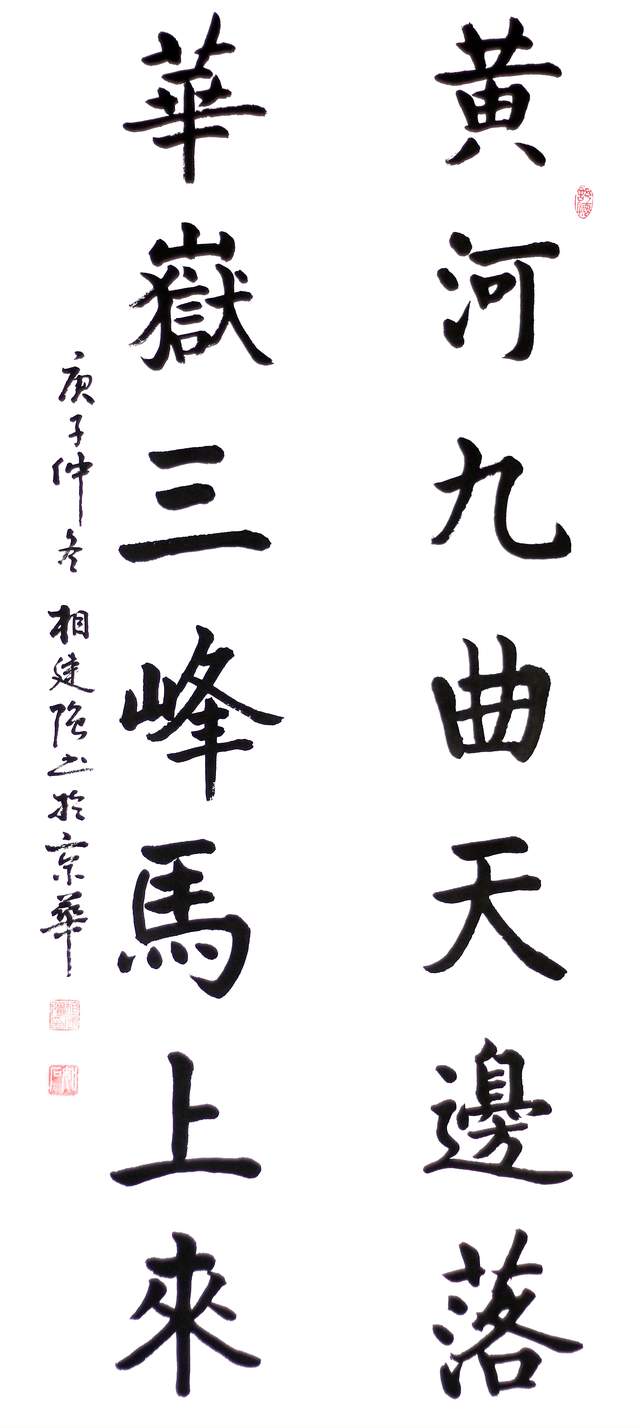 黄河九曲天邊落
華嶽三峰馬上來
庚子仲冬 相建强书於京華